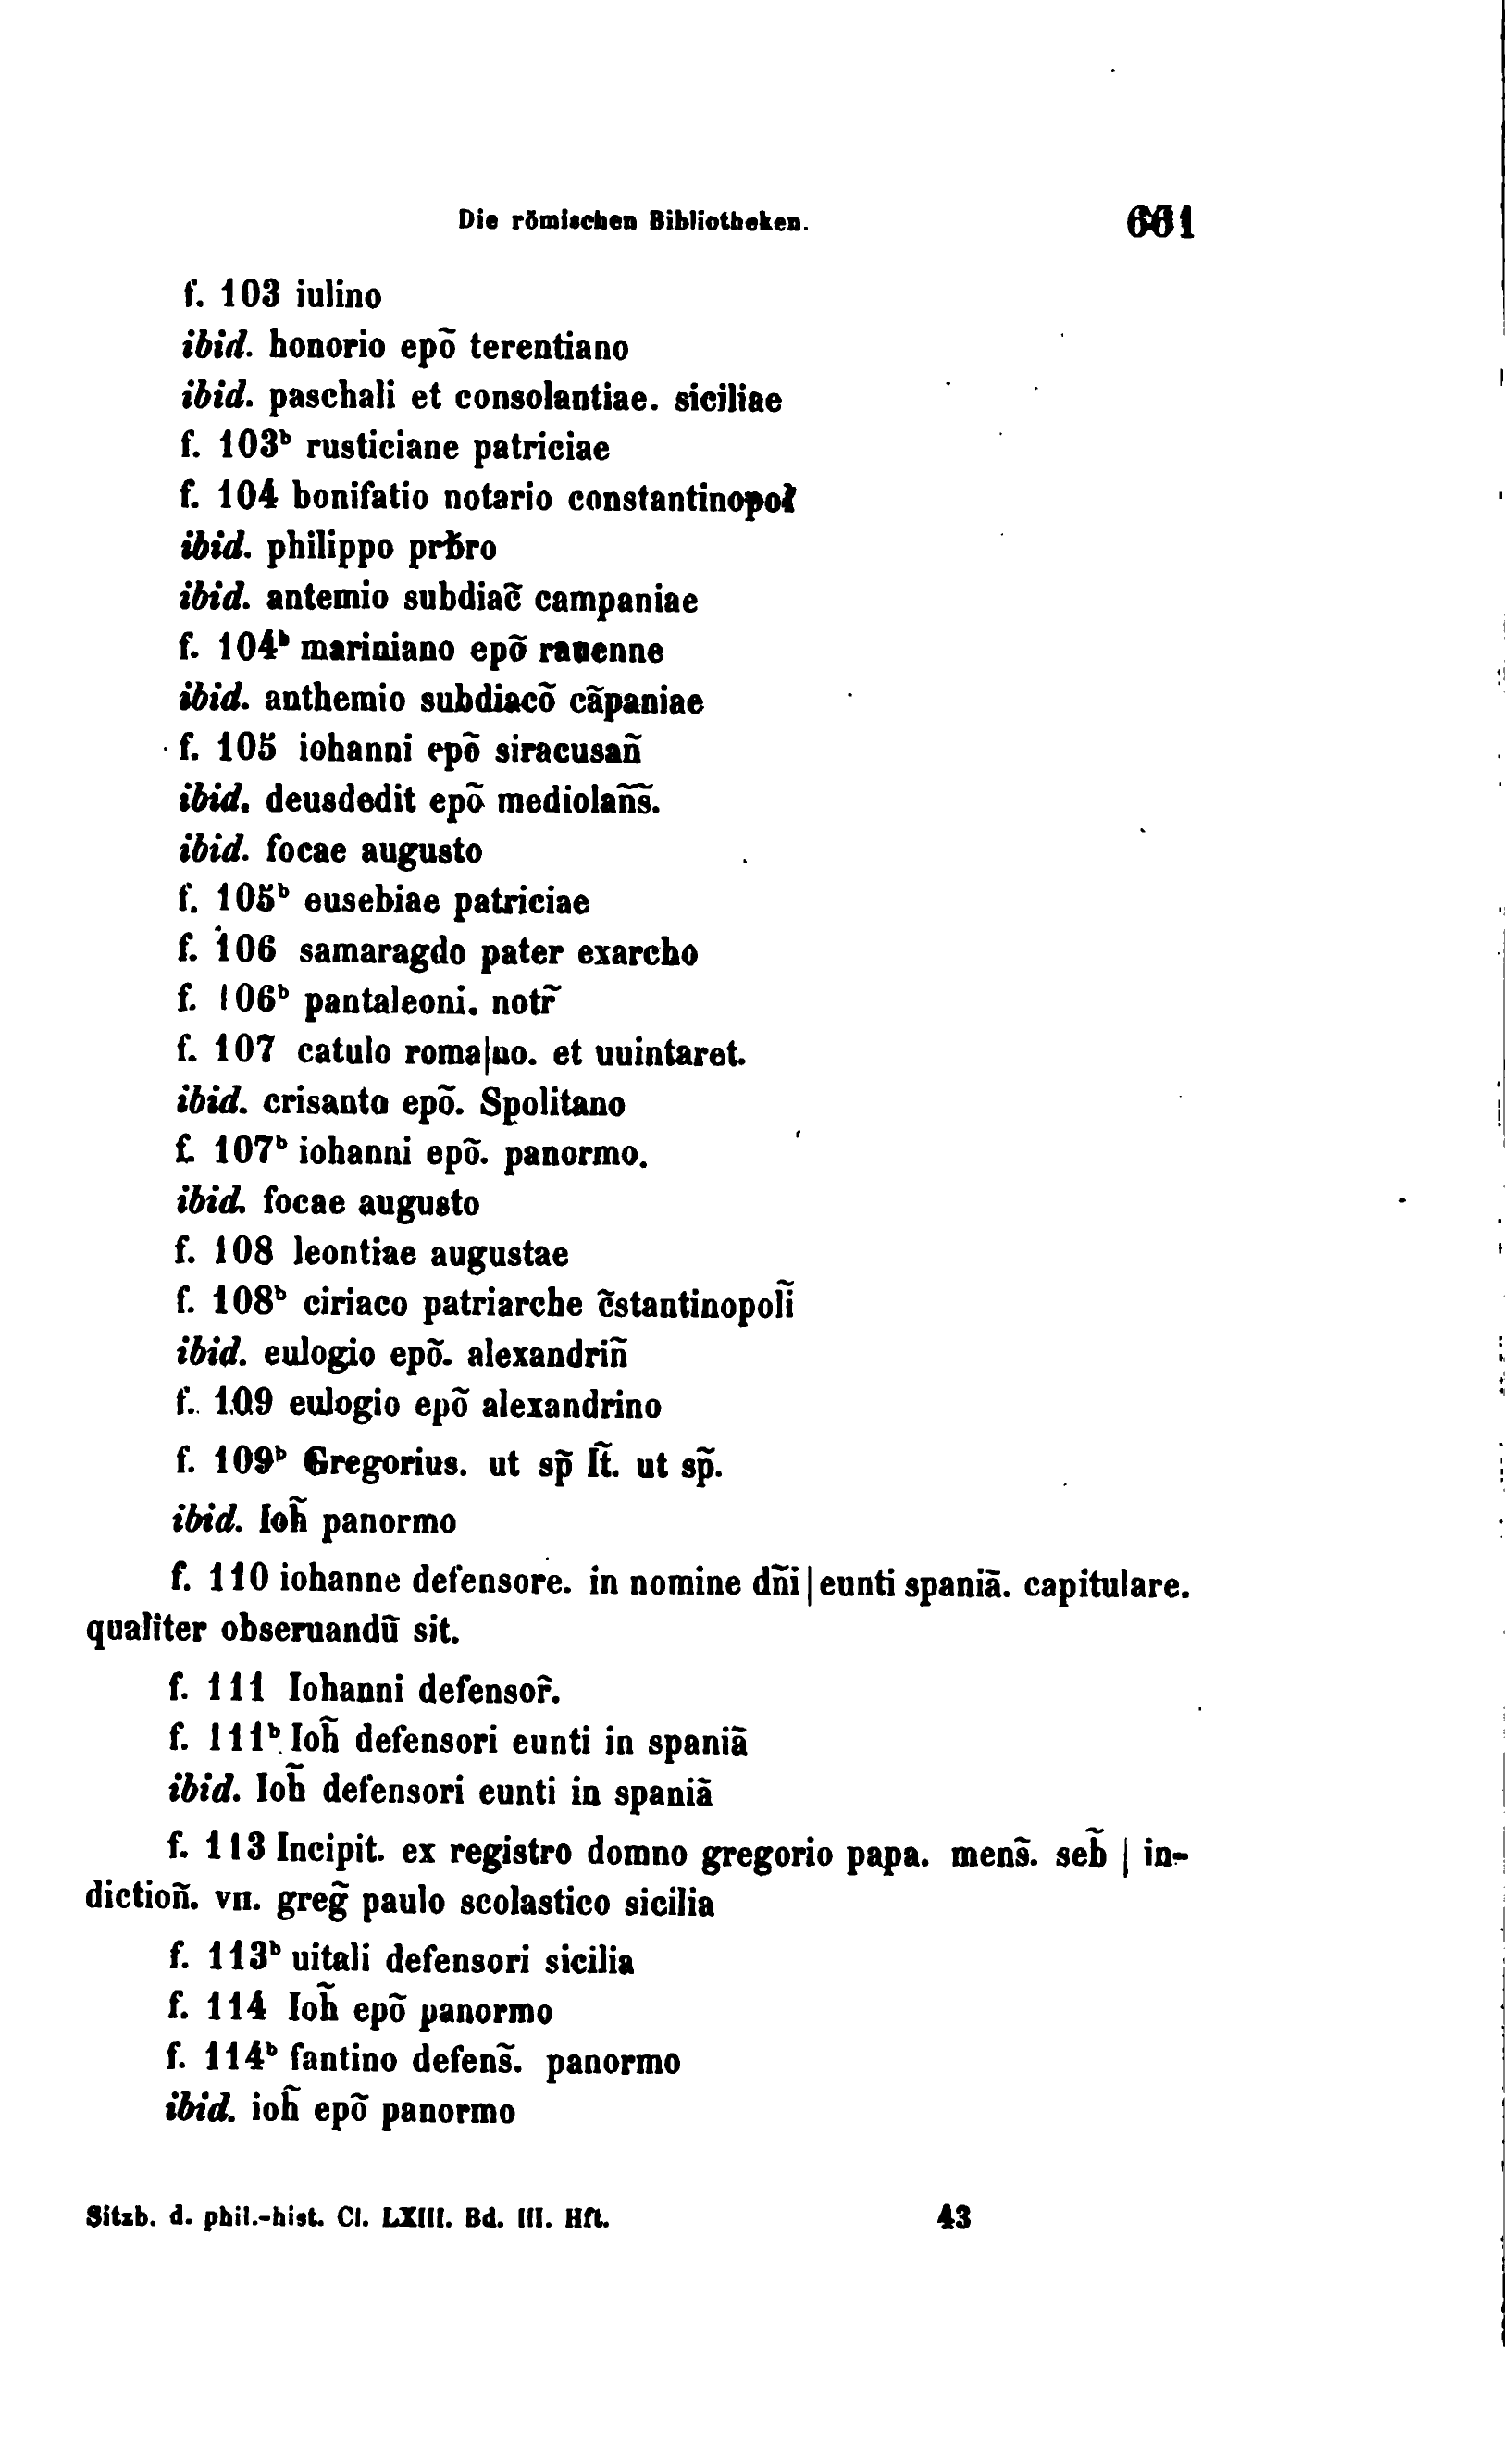 Die römischen Bibliotheken. 661
f. 103 iulino
ibid. honorio epõ terentiano
ibid. paschali et consolantiae. siciliae
f. 103ᵇ rusticiane patriciae
f. 104 bonifatio notario constantinopoł
ibid. philippo prƀro
ibid. antemio subdiac̃ campaniae
f. 104ᵇ mariniano epõ rauenne
ibid. anthemio subdiacõ cãpaniae
f. 105 iohanni epõ siracusañ
ibid. deusdedit epõ mediolañs̃.
ibid. focae augusto
f. 105ᵇ eusebiae patriciae
f. 106 samaragdo pater exarcho
f. 106ᵇ pantaleoni. notr̃
f. 107 catulo roma|no. et uuintaret.
ibid. crisanto epõ. Spolitano
f. 107ᵇ iohanni epõ. panormo.
ibid. focae augusto
f. 108 leontiae augustae
f. 108ᵇ ciriaco patriarche c̃stantinopolĩ
ibid. eulogio epõ. alexandriñ
f. 109 eulogio epõ alexandrino
f. 109ᵇ Gregorius. ut sp̃ It̃. ut sp̃.
ibid. Ioh̃ panormo
f. 110 iohanne defensore. in nomine dñi | eunti spaniã. capitulare.
qualiter obseruandũ sit.
f. 111 Iohanni defensor̃.
f. 111ᵇ Ioh̃ defensori eunti in spaniã
ibid. Ioh̃ defensori eunti in spaniã
f. 113 Incipit. ex registro domno gregorio papa. mens̃. seb̃ | in-
dictioñ. vii. greg̃ paulo scolastico sicilia
f. 113ᵇ uitali defensori sicilia
f. 114 Ioh̃ epõ panormo
f. 114ᵇ fantino defens̃. panormo
ibid. ioh̃ epõ panormo
Sitzb. d. phil.-hist. Cl. LXIII. Bd. III. Hft. 43